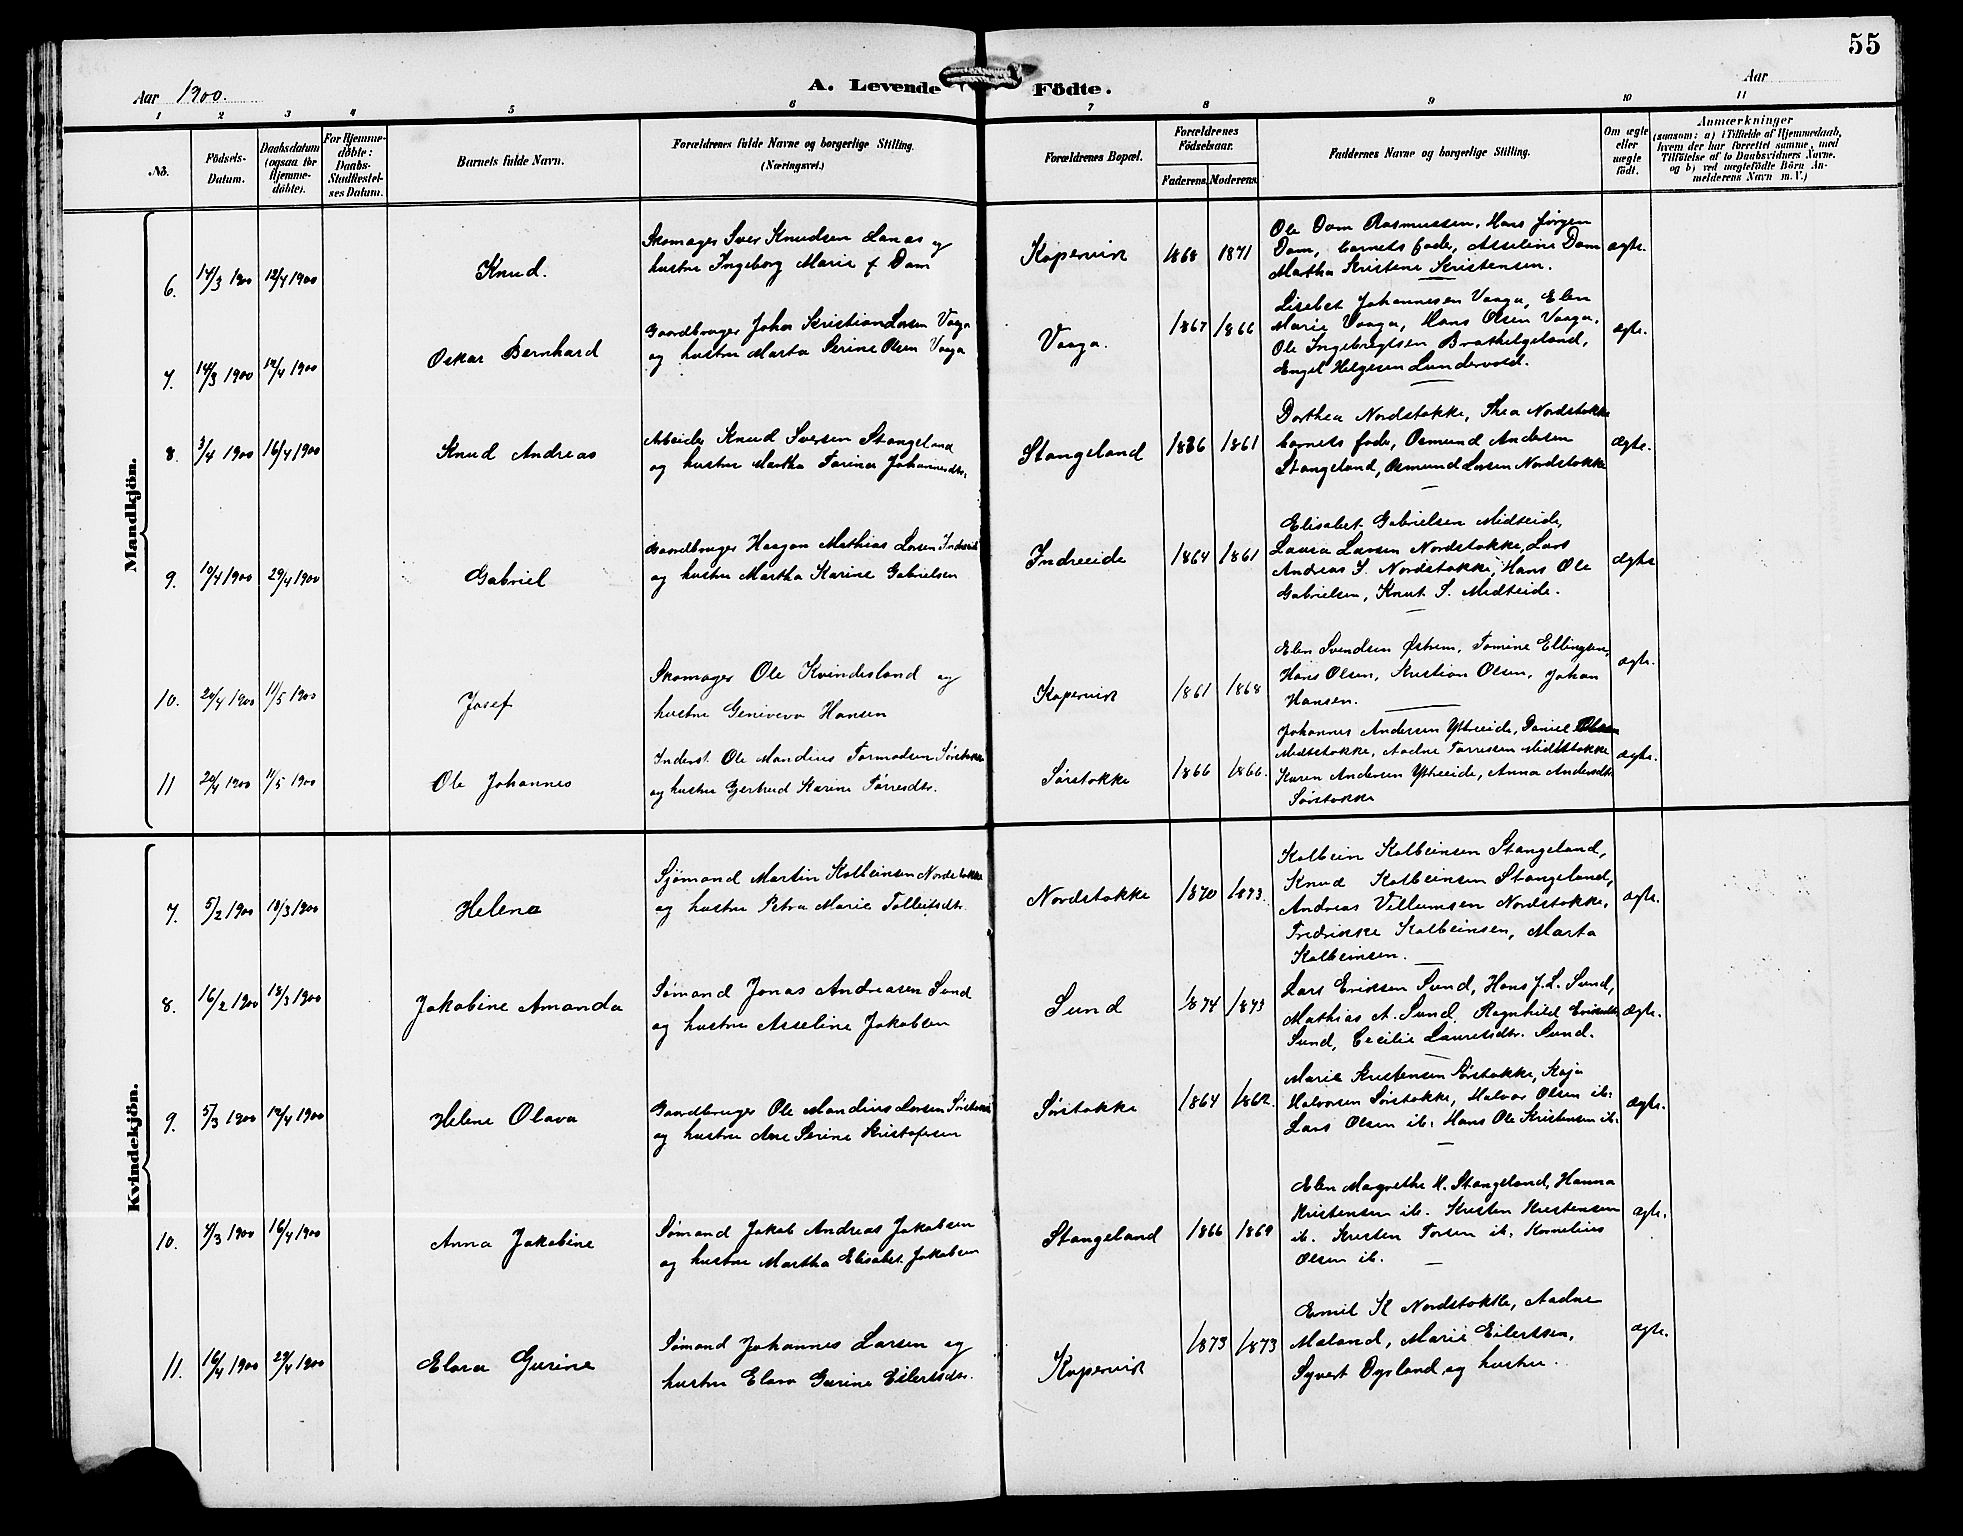 55
Aar 1900.
A. Levende Födte.
Aar
1 2 3 4 5 6 7 8 9 10 11
No.
Födsels-Datum.
Daabsdatum (ogsaa for Hjemme-döbte).
For Hjemme-döbte: Daabs-Stadfæstel-ses Datum.
Barnets fulde Navn.
Forældrenes fulde Navne og borgerlige Stilling.
(Næringsvei.)
Forældrenes Bopæl.
Forældrenes Födselsaar.
Faderens. Moderens.
Faddernes Navne og borgerlige Stilling.
Om ægte eller uægte födt.
Anmærkninger
(saasom: a) i Tilfælde af Hjemmedaab, hvem der har forrettet samme, med Tilföielse af to Daabsvidners Navne, og b) ved uægtefödte Börn An-melderens Navn m. V.)
Mandkjön.
6. 14/3 1900 12/4 1900 Knud.
Skomager Sver Knudsen Lanas og
hustru Ingeborg Marie f Dam
Kopervik 1868 1871
Ole Dam Rasmussen, Hans Jørgen
Dam, barnets fader, Asseline Dam
Martha Kristene Kristensen.
ægte.
7. 14/3 1900 12/4 1900 Oskar Bernhard
Gaardbruger Johan Kristian Larsen Vaaga
og hustru Marta Serine Olsen Vaaga
Vaaga. 1867 1866
Lisebet Johannesen Vaaga, Elen
Marie Vaaga, Hans Olsen Vaaga,
Ole Ingebregtsen Brathelgeland,
Engel Helgesen Lundervold.
ægte.
8. 3/4 1900 16/4 1900 Knud Andreas
Arbeider Knud Sversen Stangeland
og hustru Martha Tarina Johannesdtr.
Stangeland 1836 1861
Dorthea Nordstokke, Thea Nordstokke
barnets fader, Osmund Andersen
Stangeland, Osmund Larsen Nordstokke
ægte.
9. 10/4 1900 29/4 1900 Gabriel
Gaardbruger Haagon Mathias Larsen Indreeide
og hustru Martha Karine Gabrielsen
Indreeide 1864 1861
Elisabet Gabrielsen Midteide,
Laura Larsen Nordstokke, Lars
Andreas S. Nordstokke, Hans Ole
Gabrielsen, Knut S. Midteide.
ægte
10. 20/4 1900 11/5 1900 Josef
Skomager Ole Kvindesland og
hustru Geniveva Hansen
Kopervik 1861 1868
Elen Svendsen Østrem, Tomine Ellingsen,
Hans Olsen, Kristian Olsen, Johan
Hansen.
ægte.
11 20/4 1900 11/5 1900 Ole Johannes
Inderst Ole Mandius Tormodsen Sørstokke
og hustru Gertrud Karine Tørresdtr.
Sørstokke 1866 1866.
Johannes Andersen Ytreeide, Daniel Olsen
Midtstokke, Aadne Tørresen Midtstokke
Karen Andersen Ytreeide, Anna Andersdtr
Sørstokke
ægte.
Kvindekjön.
7. 5/2 1900 18/3 1900 Helena
Sjømand Martin Kolbeinsen Nordstokke
og hustru Petra Marie Tolleifsdtr.
Nordstokke 1870 1873.
Kolbein Kolbeinsen Stangeland,
Knud Kolbeinsen Stangeland,
Andreas Villumsen Nordstokke,
Fredrikke Kolbeinsen, Marta
Kolbeinsen.
ægte.
8. 16/2 1900 18/3 1900 Jakobine Amanda
Sømand Jonas Andreasen Sund
og hustru Asseline Jakobsen
Sund 1874 1873
Lars Eriksen Sund, Hans J. L. Sund,
Mathias A. Sund, Ragnhild Eriksdtr
Sund, Cecilie Lauritsdtr. Sund.
ægte.
9. 5/3 1900 12/4 1900 Helene Olava
Gaardbruger Ole Mandius Larsen Sørstokke
og hustru Ane Serine Kristofersen
Sørstokke 1864 1862.
Marie Kristensen Sørstokke, Kaja
Halvorsen Sørstokke, Halvor Olsen ib.
Lars Olsen ib. Hans Ole Kristensen ib.
ægte.
10. 4/3 1900 16/4 1900 Anna Jakobine
Sømand Jakob Andreas Jakobsen
og hustru Martha Elisabet Jakobsen
Stangeland 1866 1869
Elen Margrethe K. Stangeland, Hanna
Kristensen ib. Kristen Kristensen
ib. Kristen Torsen ib. Kornelius
Olsen ib.
ægte.
11. 16/4 1900 29/4 1900 Elara Gurine
Sømand Johannes Larsen og
hustru Elara Gurine Eilertsdtr.
Kopervik 1873 1873
Emil K Nordstokke, Aadne
Maland, Marie Eilertsen,
Syvert Dysland og hustru.
ægte.